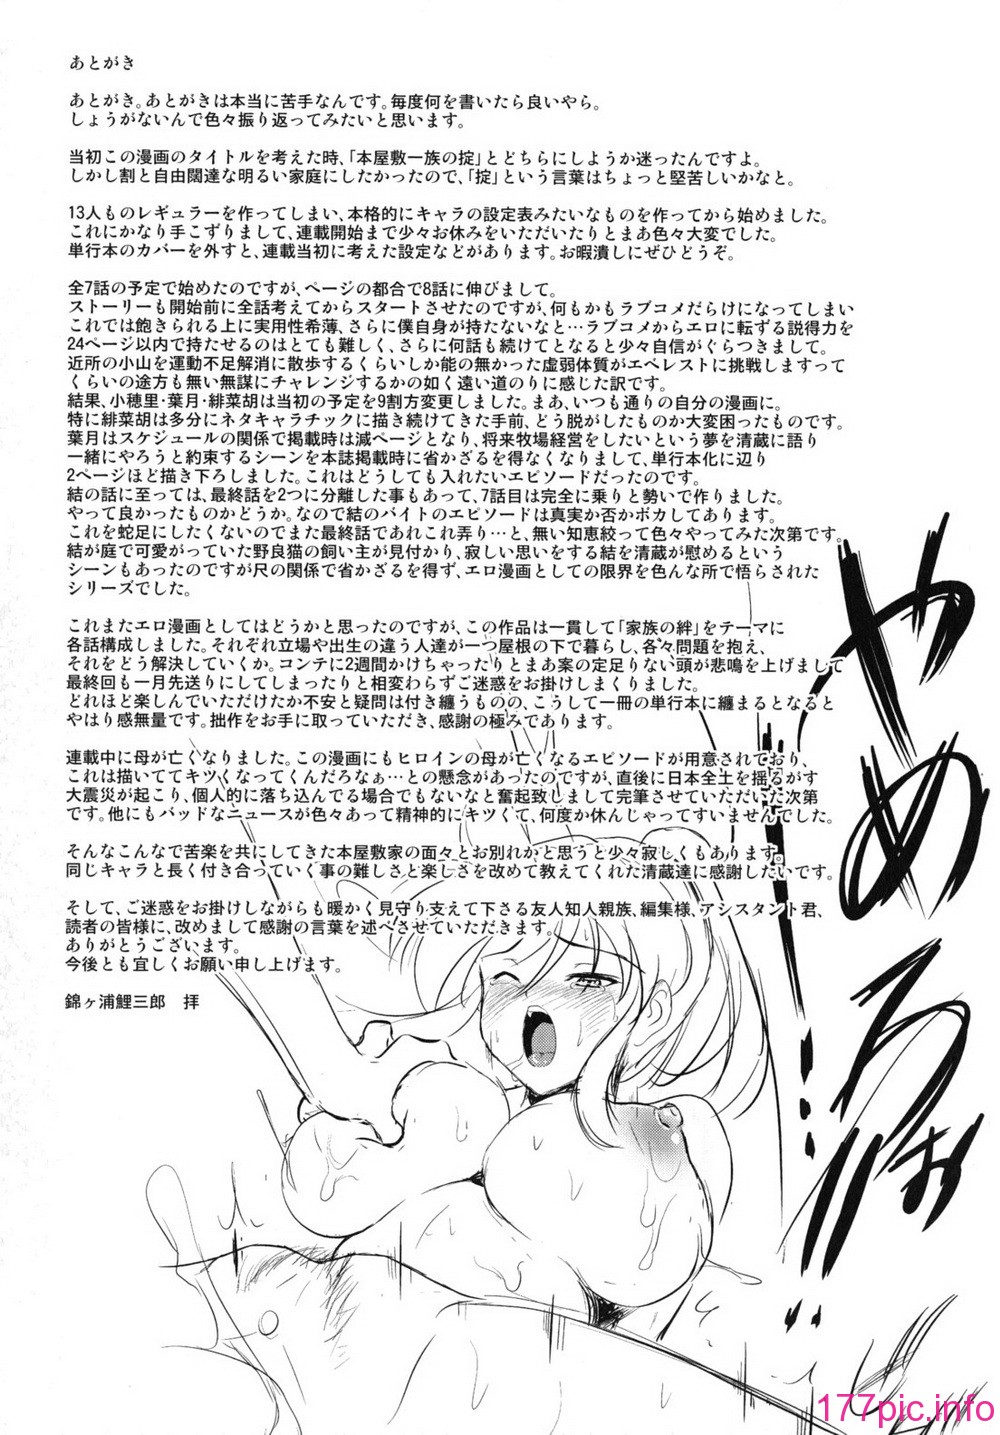 あとがき
あとがき。あとがきは本当に苦手なんです。毎度何を書いたら良いやら。
しょうがないんで色々振り返ってみたいと思います。
当初この漫画のタイトルを考えた時、「本屋敷一族の掟」とどちらにしようか迷ったんですよ。
しかし割と自由闊達な明るい家庭にしたかったので、「掟」という言葉はちょっと堅苦しいかなと。
13人ものレギュラーを作ってしまい、本格的にキャラの設定表みたいなものを作ってから始めました。
これにかなり手こずりまして、連載開始まで少々お休みをいただいたりとまあ色々大変でした。
単行本のカバーを外すと、連載当初に考えた設定などがあります。お暇潰しにぜひどうぞ。
全7話の予定で始めたのですが、ページの都合で8話に伸びまして。
ストーリーも開始前に全話考えてからスタートさせたのですが、何もかもラブコメだらけになってしまい
これでは飽きられる上に実用性希薄、さらに僕自身が持たないなと…ラブコメからエロに転ずる説得力を
24ページ以内で持たせるのはとても難しく、さらに何話も続けてとなると少々自信がぐらつきまして。
近所の小山を運動不足解消に散歩するくらいしか能の無かった虚弱体質がエベレストに挑戦しますって
くらいの途方も無い無謀にチャレンジするかの如く遠い道のりに感じた訳です。
結果、小穂里・葉月・緋菜胡は当初の予定を9割方変更しました。まあ、いつも通りの自分の漫画に。
特に緋菜胡は多分にネタキャラチックに描き続けてきた手前、どう脱がしたものか大変困ったものです。
葉月はスケジュールの関係で掲載時は減ページとなり、将来牧場経営をしたいという夢を清蔵に語り
一緒にやろうと約束するシーンを本誌掲載時に省かざるを得なくなりまして、単行本化に辺り
2ページほど描き下ろしました。これはどうしても入れたいエピソードだったのです。
結の話に至っては、最終話を2つに分離した事もあって、7話目は完全に乗りと勢いで作りました。
やって良かったものかどうか。なので結のバイトのエピソードは真実か否かボカしてあります。
これを蛇足にしたくないのでまた最終話であれこれ弄り…と、無い知恵絞って色々やってみた次第です。
結が庭で可愛がっていた野良猫の飼い主が見付かり、寂しい思いをする結を清蔵が慰めるという
シーンもあったのですが尺の関係で省かざるを得ず、エロ漫画としての限界を色んな所で悟らされた
シリーズでした。
これまたエロ漫画としてはどうかと思ったのですが、この作品は一貫して「家族の絆」をテーマに
各話構成しました。それぞれ立場や出生の違う人達が一つ屋根の下で暮らし、各々問題を抱え、
それをどう解決していくか。コンテに2週間かけちゃったりとまあ案の定足りない頭が悲鳴を上げまして
最終回も一月先送りにしてしまったりと相変わらずご迷惑をお掛けしまくりました。
どれほど楽しんでいただけたか不安と疑問は付き纏うものの、こうして一冊の単行本に纏まるとなると
やはり感無量です。拙作をお手に取っていただき、感謝の極みであります。
連載中に母が亡くなりました。この漫画にもヒロインの母が亡くなるエピソードが用意されており、
これは描いててキツくなってくんだろなぁ…との懸念があったのですが、直後に日本全土を揺るがす
大震災が起こり、個人的に落ち込んでる場合でもないなと奮起致しまして完筆させていただいた次第
です。他にもバッドなニュースが色々あって精神的にキツくて、何度か休んじゃってすいませんでした。
そんなこんなで苦楽を共にしてきた本屋敷家の面々とお別れかと思うと少々寂しくもあります。
同じキャラと長く付き合っていく事の難しさと楽しさを改めて教えてくれた清蔵達に感謝したいです。
そして、ご迷惑をお掛けしながらも暖かく見守り支えて下さる友人知人親族、編集様、アシスタント君、
読者の皆様に、改めまして感謝の言葉を述べさせていただきます。
ありがとうございます。
今後とも宜しくお願い申し上げます。
錦ヶ浦鯉三郎　拝
やめろぉ
177pic.info